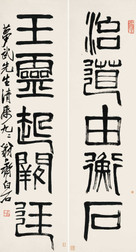 治道由衡石
王靈起闕廷
先生清屬九二翁齊白石